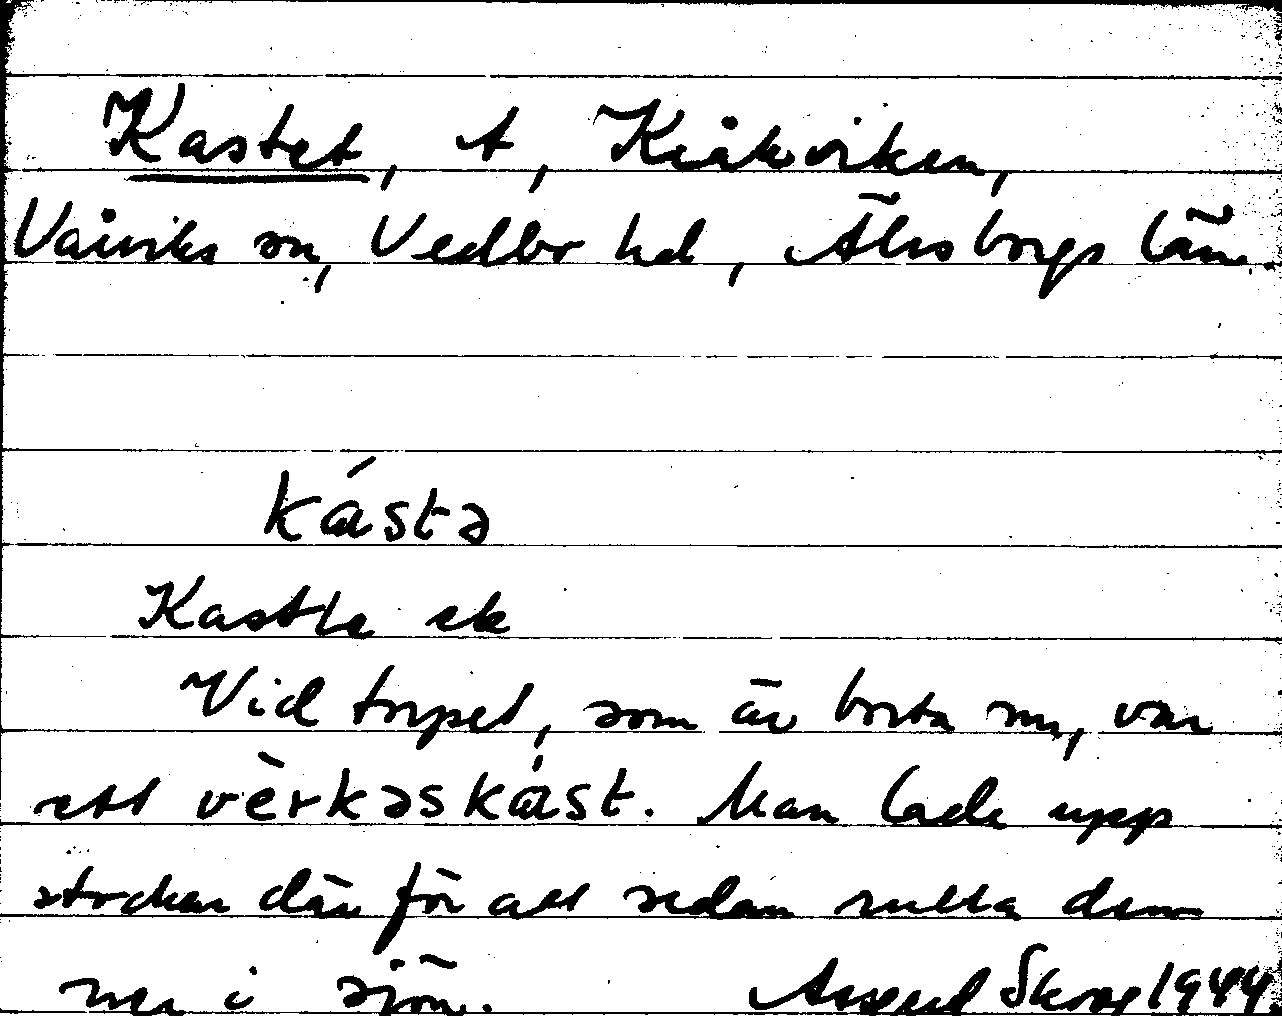 Kastet, t, Kråkviken,
Vårviks sn, Vedbo hd, Älvsborgs län.
kástə
Kastte ek
Vid torpet, som är borta nu, var
ett vèrkəskást. Man lade upp
stockar där för att sedan rulla dem
ner i sjön. Assar Skog 1944.